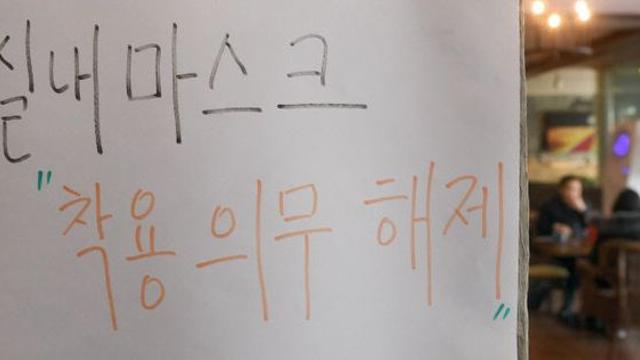 실내마스크
"착용 의무 해제"